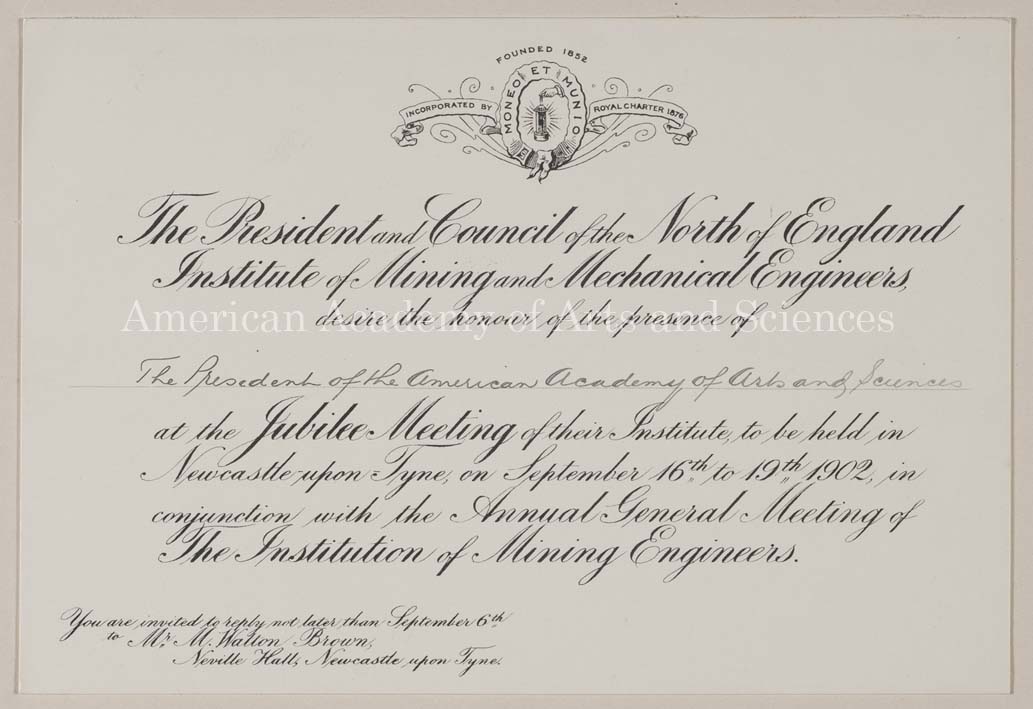 FOUNDED 1852
INCORPORATED BY
MONEO ET MUNIO
ROYAL CHARTER 1876
The President and Council of the North of England
Institute of Mining and Mechanical Engineers,
desire the honour of the presence of
American Academy of Arts and Sciences
The President of the American Academy of Arts and Sciences
at the Jubilee Meeting of their Institute, to be held in
Newcastle-upon-Tyne, on September 16th to 19th 1902, in
conjunction with the Annual General Meeting of
The Institution of Mining Engineers.
You are invited to reply not later than September 6th
to Mr. M. Walton Brown,
Neville Hall, Newcastle upon Tyne.